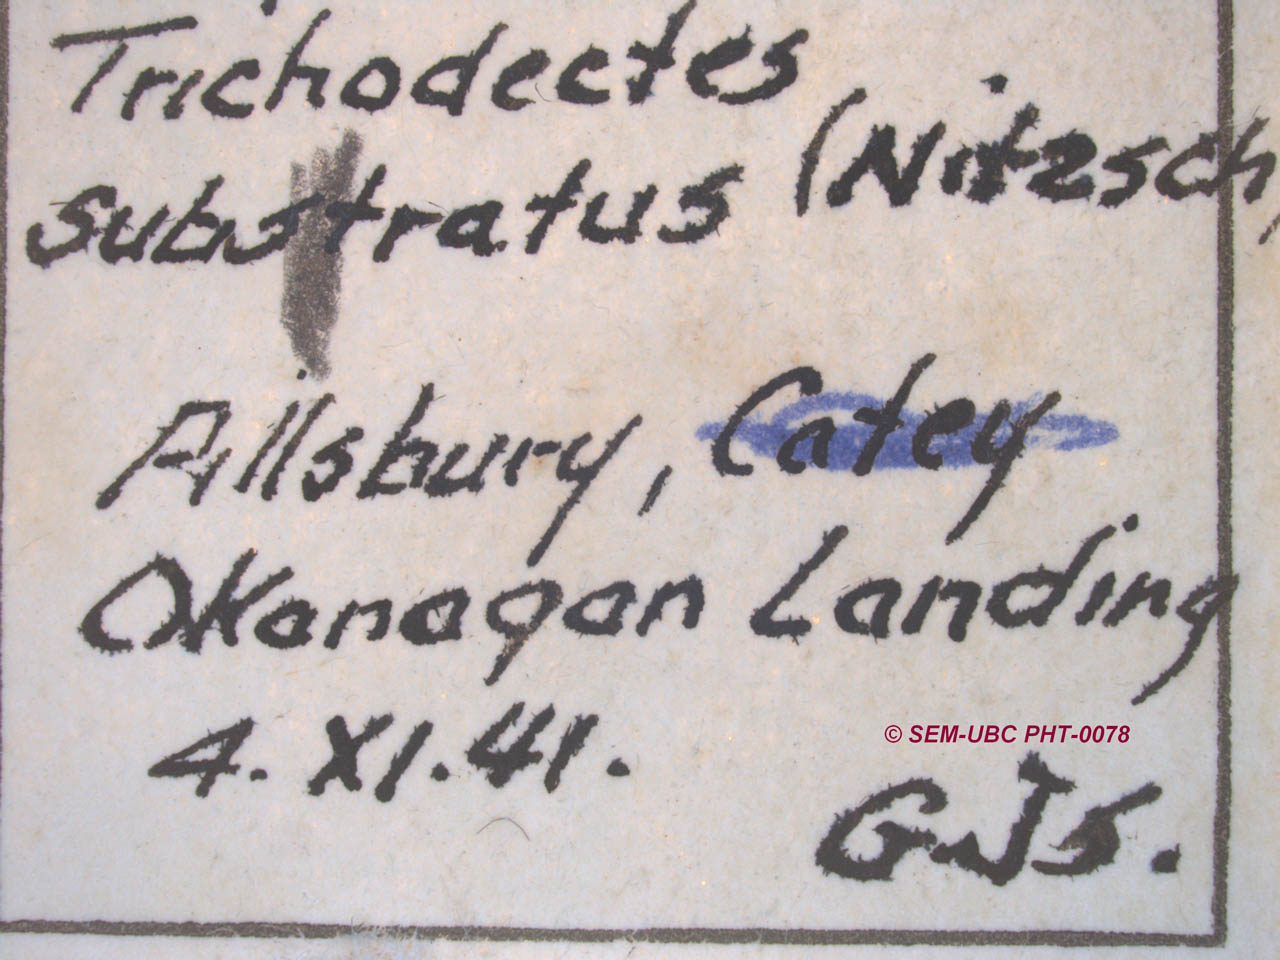 Trichodectes
substratus (Nitzsch,
Pillsbury, Catey
Okanagan Landing
4. XI. 41.
© SEM-UBC PHT-0078
GJS.